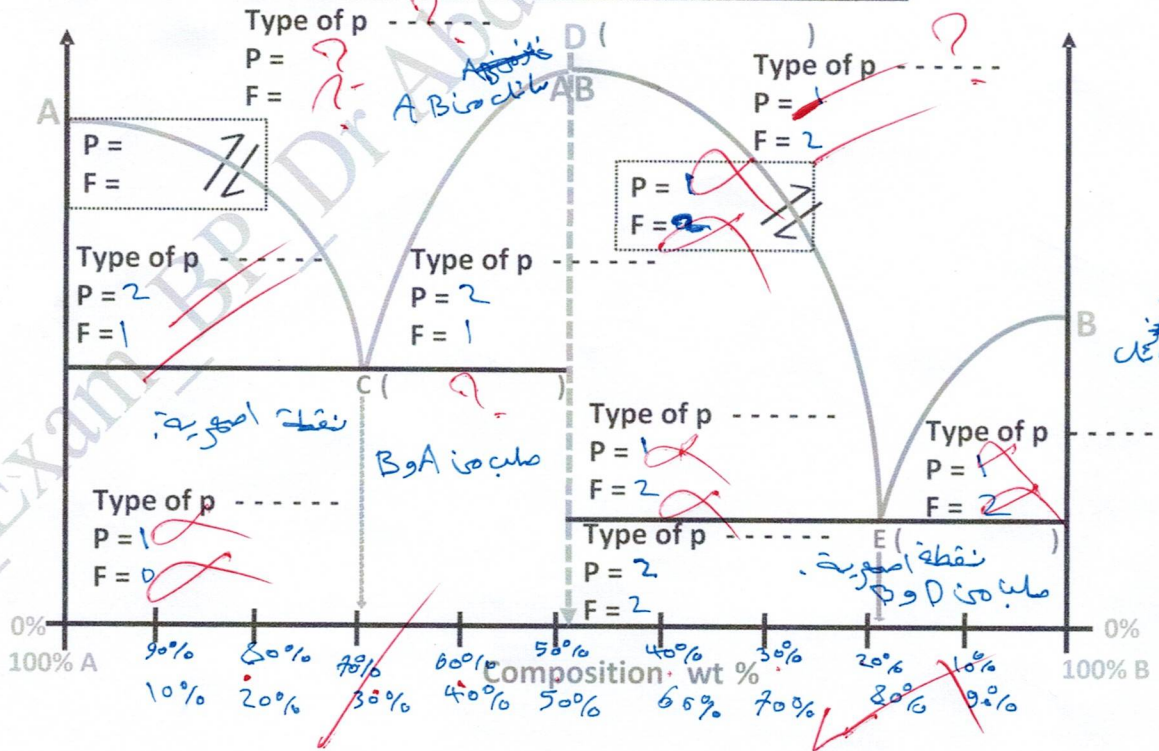 Type of p - - - - - -
P = ?
F = ?
D (            )
AB
A B سائل من
Type of p - - - - - - ?
P = 1
F = 2
A
P =
F =
P = 1
F =
Type of p - - - - - -
P = 2
F = 1
Type of p - - - - - -
P = 2
F = 1
B
C (            )
?
نقطة اصهرية.
صلب من A و B
Type of p - - - - - -
P = 1
F = 2
Type of p - - - - - -
P = 1
F = 2
Type of p - - - - - -
P = 1
F = 0
Type of p - - - - - -
P = 2
F = 2
E (            )
نقطة اصهرية.
صلب من D و B
Exam_BP_Dr Abd
0%
0%
100% A
90% 80% 70% 60% 50% 40% 30% 20% 10%
Composition wt %
100% B
10% 20% 30% 40% 50% 60% 70% 80% 90%